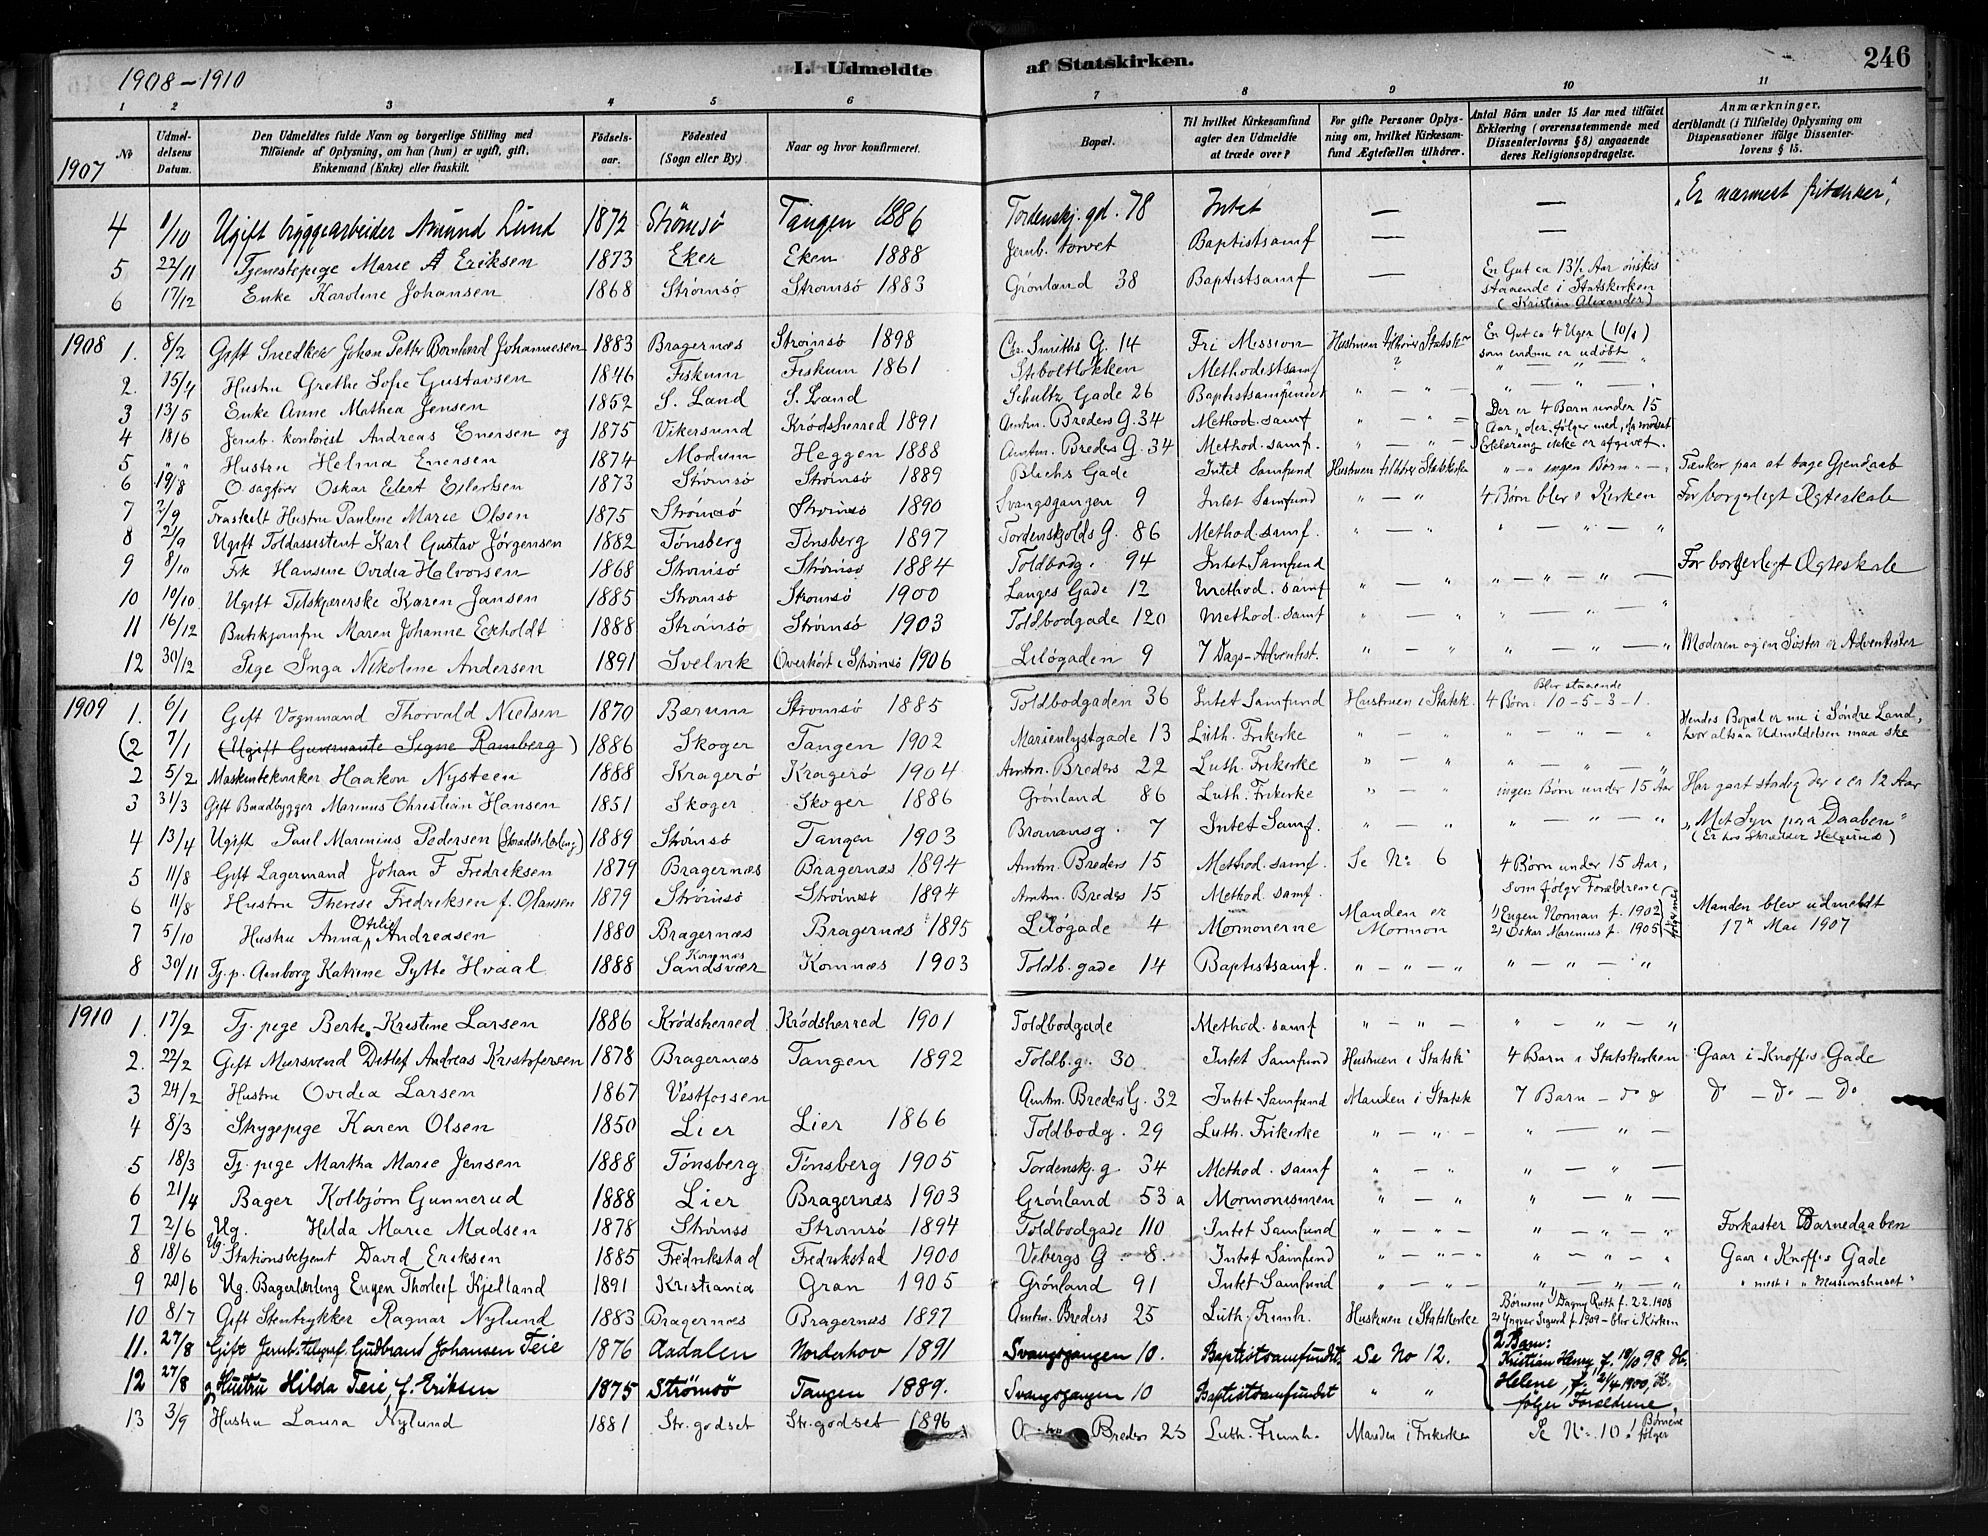 1908-1910
I. Udmeldte af Statskirken.
246
1 2 3 4 5 6 7 8 9 10 11
1907
№
Udmeldelsens Datum.
Den Udmeldtes fulde Navn og borgerlige Stilling med Tilföiende af Oplysning, om han (hun) er ugift, gift, Enkemand (Enke) eller fraskilt.
Födselsaar.
Födested (Sogn eller By.)
Naar og hvor konfirmeret.
Bopæl.
Til hvilket Kirkesamfund agter den Udmeldte at træde over?
For gifte Personer Oplysning om, hvilket Kirkesamfund Ægtefællen tilhörer.
Antal Börn under 15 Aar med tilföiet Erklæring (overensstemmende med Dissenterlovens § 8) angaaende deres Religionsopdragelse.
Anmærkninger. deriblandt (i Tilfælde) Oplysning om Dispensationer ifölge Dissenterlovens § 15.
4 1/10 Ugift bryggearbeider Amund Lund 1872 Strömsö Tangen 1886 Tordenskj. gd. 78 Intet — — "Er nærmest fritænker"
5 22/11 Tjenestepige Marie A Eriksen 1873 Eker Eker 1888 Jernb. torvet Baptistsamf — —
6 17/12 Enke Karoline Johansen 1868 Strømsö Strømsö 1883 Grønland 38 Baptistsamf — En Gut ca 13½ Aar ønskes staaende i Statskirken (Kristian Alexander)
1908 1. 8/2 Gift Snedker Johan Petter Bernhard Johannesen 1883 Bragernæs Strømsö 1898 Chr. Smiths G. 14 Fri Mission Hustruen tilhører Statsk. En Gut ca 4 Uger (10/1) som endnu er udøbt
2. 15/4 Hustru Grethe Sofie Gustavsen 1846 Fiskum Fiskum 1861 Stiboltløkken Methodistsamf ? " — " — "
3 13/5 Enke Anne Mathea Jensen 1852 S. Land S. Land Schultz Gade 26 Baptistsamfundet " — " — " — " —
4 18/6 Jernb. kontorist Andreas Enersen og 1875 Vikersund Krødsherred 1891 Amtm. Breders G. 34 Method. samf " — " — Der er 4 Barn under 15 Aar, der følger med,
5 " " Hustru Helma Enersen 1874 Modum Heggen 1888 Amtm. Breders G. 34 Method. samf. " — " — Erklæring ikke er afgivet.
6 19/8 O. sagfører Oskar Eilert Eilertsen 1873 Strømsö Strømsö 1889 Blichs Gade Intet Samfund Hustruen tilhører Statskirken " — " ingen Børn " — Tænker paa at tage Gjendaab
7 2/9 Fraskilt Hustru Pauline Marie Olsen 1875 Strømsö Strømsö 1890 Svangsgangen 9 Intet Samfund " — " 4 Børn blev i Kirken For borgerligt Ægteskab
8 21/9 Ugift Toldassistent Karl Gustav Jørgensen 1882 Tønsberg Tønsberg 1897 Tordenskjolds G. 86 Method. samf. " — " " — " — "
9 8/10 Frk Hansine Ovidia Halvorsen 1868 Strømsö Strømsö 1884 Toldbodg. 94 Intet Samfund For borgerligt Ægteskab
10 10/10 Ugift Filskjærerske Karen Jansen 1885 Strømsö Strømsö 1900 Langes Gade 12 Method. samf " — " " — " — " —
11 16/12 Butikjomfru Maren Johanne Eckholdt 1888 Strømsö Strømsö 1903 Toldbodgade 120 Method. samf " — " " — " — "
12 30/12 Pige Inga Nikoline Andersen 1891 Svelvik Overhørt i Strømsö 1906 Liløgaden 9 7 Dags-Adventist. " — " " — " — " Moderen og en Søster er Adventister
1909 1. 6/1 Gift Vognmand Thorvald Nielsen 1870 Bærum Strømsö 1885 Toldbodgaden 36 Intet Samfund Hustruen i Statsk. Blir staaende 4 Børn 10-5-3-1.
(2 7/1 (Ugift Guvernante Signe Ramberg) 1886 Skoger Tangen 1902 Marienlystgade 13 Luth. Frikirke " — " " — " — " Hendes Bopæl er nu i Søndre Land, hvor altsaa Udmeldelsen maa ske
2 5/2 Maskintekniker Haakon Nysteen 1888 Kragerö Kragerö 1904 Amtm. Breders 22 Luth. Frikirke " — " " — " — "
3 31/3 Gift Baadbygger Marinius Christian Hansen 1851 Skoger Skoger 1886 Grønland 86 Luth. Frikirke " — " ingen Børn under 15 Aar Har gaat stadig der i en 12 Aar
4 13/4 Ugift Paul Marinius Pedersen 1889 Strømsö Tangen 1903 Bromansg. 7 Intet Samf. " — " " — " — " "Met Syn paa Daaben" (Er hos Skrædder Helgerud)
5 11/8 Gift Lagermand Johan F Fredriksen 1879 Bragernæs Bragernæs 1894 Amtm. Breders 15 Method. samf. Se No: 6 4 Børn under 15 Aar,
6 11/8 Hustru Therese Fredriksen f. Olausen 1879 Strømsö Strømsö 1894 Amtm. Breders 15 Method. samf. som følger Forældrene
7 5/10 Hustru Anna Otilie Andreasen 1880 Bragernæs Bragernæs 1895 Liløgade 4 Mormonerne Manden er Mormon 1) Eugen Norman f. 1902 2) Oskar Marinius f. 1905 Manden blev udmeldt 17de Mai 1907
8 30/11 Tj. p. Amborg Katrine Pytte Hvaal 1888 Komnæs Sandsvær Komnæs 1903 Toldb. gade 14 Baptistsamf. " — " — " " — " — "
1910 1. 17/2 Tj. pige Berte Kristine Larsen 1886 Krødsherred Krødsherred 1901 Toldbodgade Method. samf " — " — " — " — "
2. 22/2 Gift Mursvend Detlef Andreas Kristofersen 1878 Bragernæs Tangen 1892 Toldb. g. 30 Intet Samfund Hustruen i Statsk 4 Barn i Statskirken Gaar i Knoffs Gade
3 24/2 Hustru Ovidia Larsen 1867 Vestfossen Amtm. Breders G. 32 Intet Samfund Manden i Statsk 7 Barn — do do do — do — do
4 8/3 Strygepige Karen Olsen 1850 Lier Lier 1866 Toldbodg. 29 Luth. Frikirke " — " — " — " —
5 18/3 Tj. pige Martha Marie Jensen 1888 Tønsberg Tønsberg 1905 Tordenskj. g. 34 Method. samf " — " " — " —
6 21/4 Bager Kolbjørn Gunnerud 1888 Lier Bragernæs 1903 Grønland 53 a Mormonismen " — " " — " —
7 2/6 Ug. Hilda Marie Madsen 1878 Strømsö Strømsö 1894 Toldbodgade 110 Intet Samfund " — " — " — " — " Forkaster Barnedaaben
8 18/6 Ug. Stationsbetjent David Eriksen 1885 Fredrikstad Fredrikstad 1900 Vebergs G. 8. Intet Samfund " — " — " " — " — " Gaar i Knoffs Gade
9 20/6 Ug. Bagerlærling Eugen Thorleif Kjelland 1891 Kristiania Gran 1905 Grønland 91 Intet Samfund " — " — " " — " — " " mest i "Missionshuset"
10 8/7 Gift Stentrykker Ragnar Nylund 1883 Bragernæs Bragernæs 1897 Amtm. Breders 25 Luth. Frimh. Hustruen i Statskirke Børnene 1) Dagny Ruth f. 22.1908 2) Yngvar Sigurd f. 1909 - blir i Kirken
11. 27/8 Gift Jernb. telegraf. Gudbrand Johansen Teie 1876 Aadalen Norderhov 1891 Svangsgangen 10. Baptistsamfundet. Se No 12. 2 Barn: Kristian Henry, f. 10/10 98
12 27/8 Hustru Hilda Teie, f. Eriksen 1875 Strömsö Tangen 1889. Svangsgangen 10 Baptistsamfundet " " Helene, f. 21/4 1900, følger Forældrene.
13 3/9 Hustru Laura Nylund 1881 Str. godset Str. godset 1896 Breders 25 Luth. Frimh. Manden i Frikirken Se No: 10! Børnene følger